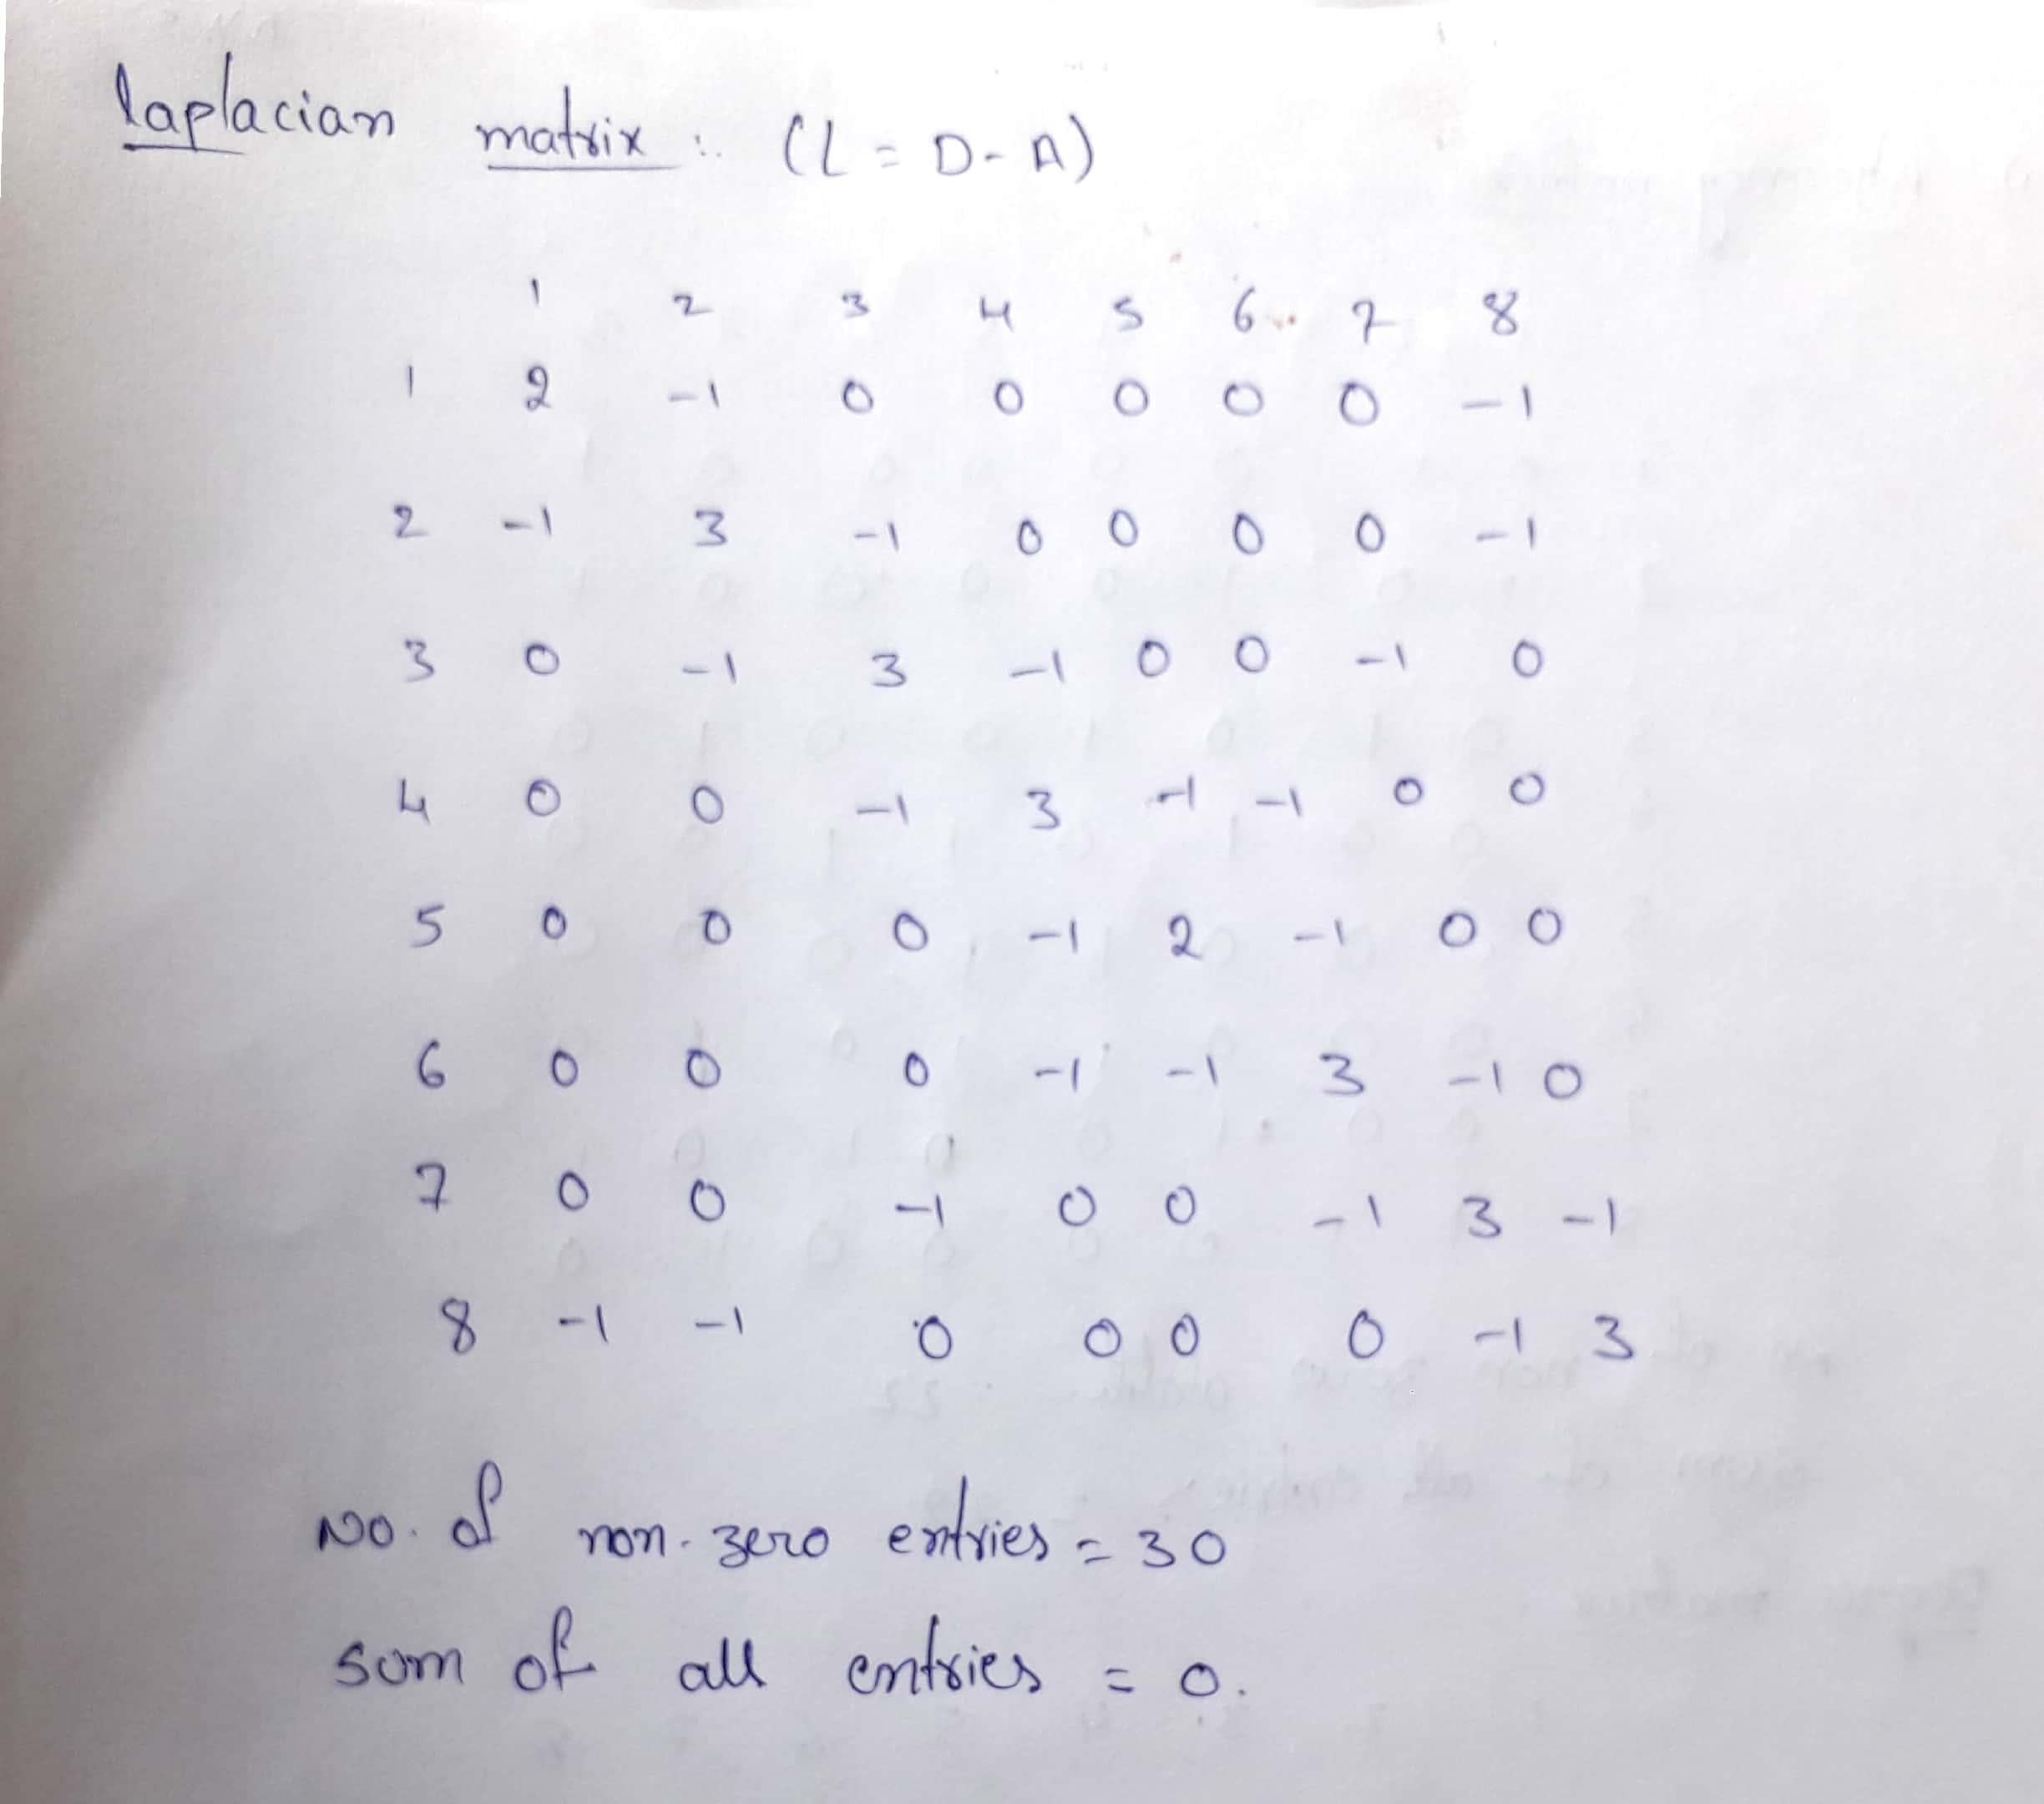 laplacian matrix :. (L = D - A)
1 2 3 4 5 6 7 8
1 2 -1 0 0 0 0 0 -1
2 -1 3 -1 0 0 0 0 -1
3 0 -1 3 -1 0 0 -1 0
4 0 0 -1 3 -1 -1 0 0
5 0 0 0 -1 2 -1 0 0
6 0 0 0 -1 -1 3 -1 0
7 0 0 -1 0 0 -1 3 -1
8 -1 -1 0 0 0 0 -1 3
No. of non-zero entries = 30
sum of all entries = 0.